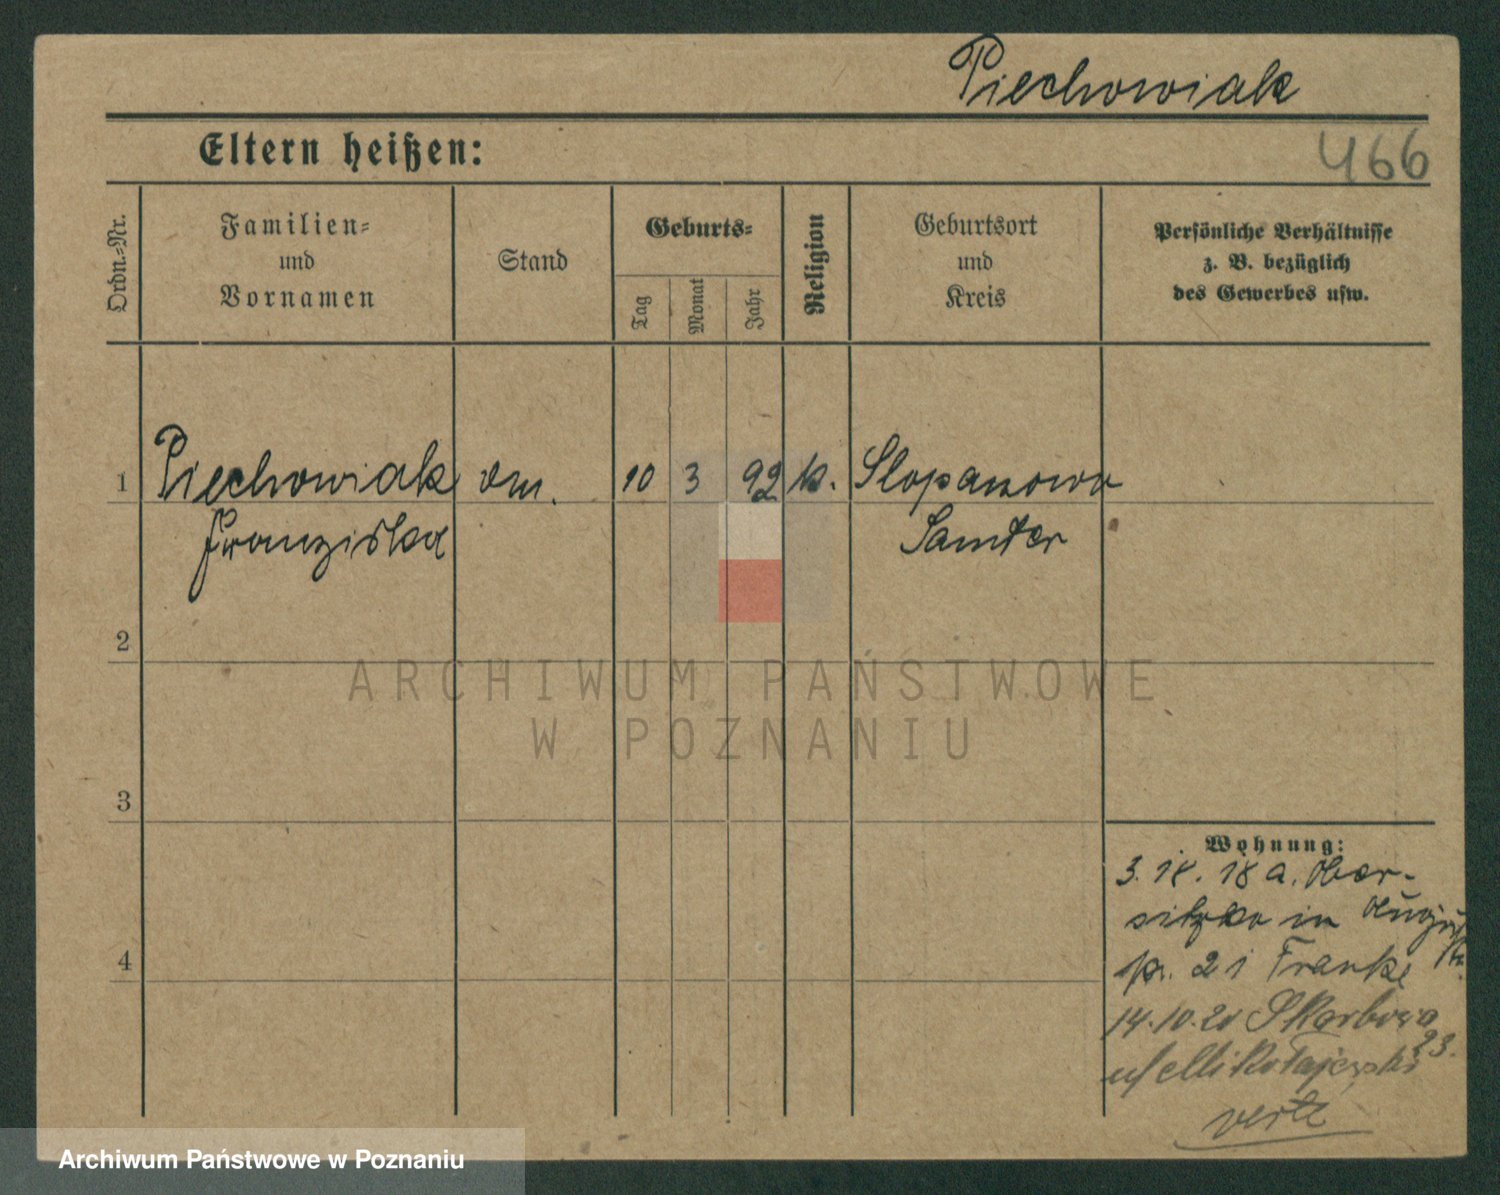 Piechowiak
466
Eltern heißen:
Ordn.-Nr.
Familien-
und
Vornamen
Stand
Geburts-
Tag
Monat
Jahr
Religion
Geburtsort
und
Kreis
Persönliche Verhältnisse
z. B. bezüglich
des Gewerbes usw.
1 Piechowiak 10 3 92 k. Slopanowo
Franziska Samter
2
3
4
Wohnung:
3. 18. 18 a. Ober-
sitzko in
21 Franke
14.10.20 Skarbowa
23.
Mikołajewski
verte
ARCHIWUM PAŃSTWOWE
W POZNANIU
Archiwum Państwowe w Poznaniu